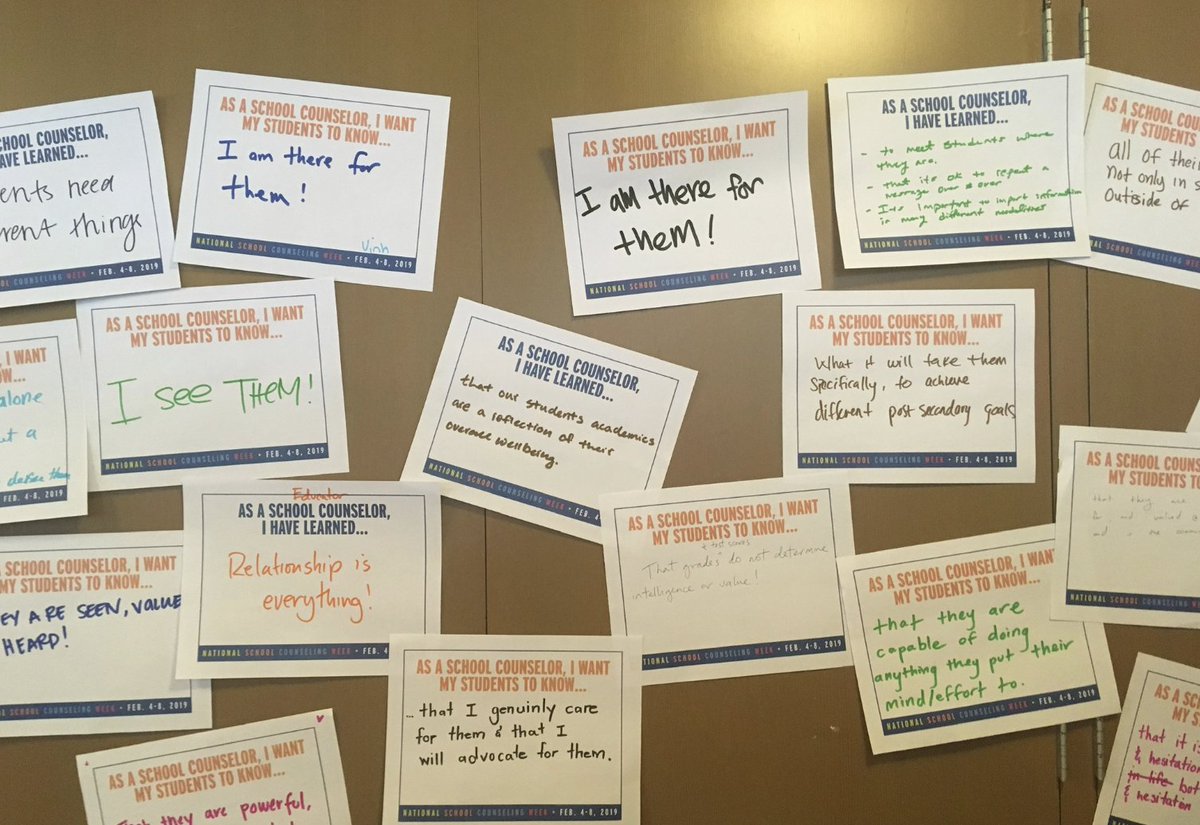 SCHOOL COUNSELOR,
HAVE LEARNED...
ents need
rent things
NATIONAL SCHOOL COUNSELING WEEK • FEB. 4-8, 2019
AS A SCHOOL COUNSELOR, I WANT
MY STUDENTS TO KNOW...
I am there for
them!
Vinh
NATIONAL SCHOOL COUNSELING WEEK • FEB. 4-8, 2019
AS A SCHOOL COUNSELOR, I WANT
MY STUDENTS TO KNOW...
I am there for
them!
NATIONAL SCHOOL COUNSELING WEEK • FEB. 4-8, 2019
AS A SCHOOL COUNSELOR,
I HAVE LEARNED...
- to meet students where
they are.
- that it's ok to repeat a
message over & over
- It's important to impart information
in many different modalities
NATIONAL SCHOOL COUNSELING WEEK • FEB. 4-8, 2019
AS A SCHOOL
MY STUDENTS
all of their
not only in s
outside of
NATIONAL SCHOOL COUNSELING
I WANT
OW...
alone
ut a
define them
FEB. 4-8, 2019
AS A SCHOOL COUNSELOR, I WANT
MY STUDENTS TO KNOW...
I see THEM!
NATIONAL SCHOOL COUNSELING WEEK • FEB. 4-8, 2019
AS A SCHOOL COUNSELOR,
I HAVE LEARNED...
that our students academics
are a reflection of their
overall wellbeing.
NATIONAL SCHOOL COUNSELING WEEK • FEB. 4-8, 2
AS A SCHOOL COUNSELOR, I WANT
MY STUDENTS TO KNOW...
What it will take them
specifically, to achieve
different post secondary goals
NATIONAL SCHOOL COUNSELING WEEK • FEB. 4-8, 2019
SCHOOL COUNSELOR, I WANT
MY STUDENTS TO KNOW...
EY ARE SEEN, VALUE
HEARD!
NATIONAL SCHOOL COUNSELING WEEK • FEB. 4-8, 2019
Educator
AS A SCHOOL COUNSELOR,
I HAVE LEARNED...
Relationship is
everything!
NATIONAL SCHOOL COUNSELING WEEK • FEB. 4
AS A SCHOOL COUNSELOR, I WANT
MY STUDENTS TO KNOW...
+ test scores
That grades do not determine
intelligence or value!
NATIONAL SCHOOL COUNSELING WEEK • FEB. 4-8, 2019
AS A SCHOOL COUNSELOR, I WAN
MY STUDENTS TO KNOW...
that they are
capable of doing
anything they put their
mind/effort to.
NATIONAL SCHOOL COUNSELING WEEK • FEB. 4-8, 2019
AS A SCHOOL COUNS
MY STUDENTS TO
that they are
and valued
NATIONAL SCHOOL COUNSELING WEE
AS A SCHOOL COUNSELOR, I WANT
MY STUDENTS TO KNOW...
that they are powerful,
AS A SCHOOL COUNSELOR, I WANT
MY STUDENTS TO KNOW...
... that I genuinly care
for them & that I
will advocate for them.
NATIONAL SCHOOL COUNSELING WEEK • FEB. 4-8, 2019
AS A SCHOO
MY STUD
that it is
& hesitation
in life bot
& hesitation